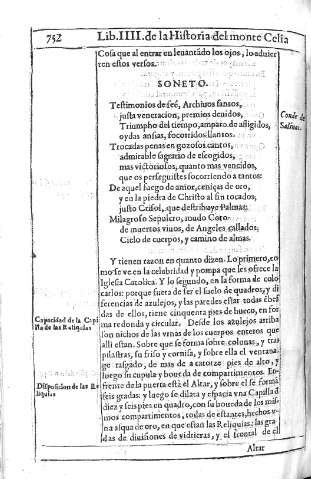 752
Lib.IIII. de la Historia del monte Celia
Cosa que al entrar en leuantãdo los ojos, lo aduier
ten estos versos.
SONETO.
Testimonios de feè, Archiuos santos,
justa veneracion, premios deuidos,
Triumpho del tiempo, amparo de afligidos,
oydas ansias, socorridos llantos.
Trocadas penas en gozosos cantos,
admirable sagrario de escogidos,
mas victoriosos, quanto mas vencidos,
que os perseguistes socorriendo a tantos:
De aquel fuego de amor, cenizas de oro,
y en la piedra de Christo al fin tocados,
justo Crisol, que destribuye Palmas:
Milagroso Sepulcro, mudo Coro
de muertos viuos, de Angeles callados,
Cielo de cuerpos, y camino de almas.
Conde de
Salinas.
Y tienen razon en quanto dizen. Lo primero, co
mo se ve en la celebridad y pompa que les ofrece la
Iglesia Catolica. Y lo segundo, en la forma de colo
carlos: porque fuera de ser el suelo de quadros, y di
ferencias de azulejos, y las paredes estar todas
das de ellos, tiene cinquenta pies de hueco, en for
ma redonda y circular. Desde los azulejos arriba
son nichos de las vrnas de los cuerpos enteros que
alli estan. Sobre que se forma sobre colunas, y tras
pilastras, su friso y cornisa, y sobre ella el ventana-
ge rasgado, de mas de a catorze pies de alto, y
luego su cupula y bouéda de compartimentos. En-
frente de la puerta està el Altar, y sobre el se forma
seis gradas: y luego se dilata y espacia vna Capilla d
diez y seis pies en quadro, con su boueda de los mis-
mos compartimentos, todas de estantes, hechos v-
na asqua de oro, en que estan las Reliquias: las gra-
das de diuisiones de vidrieras, y el frontal de el
Capacidad de la Capi
lla de las Reliquias
Disposicion de las Re
liquias
Altar